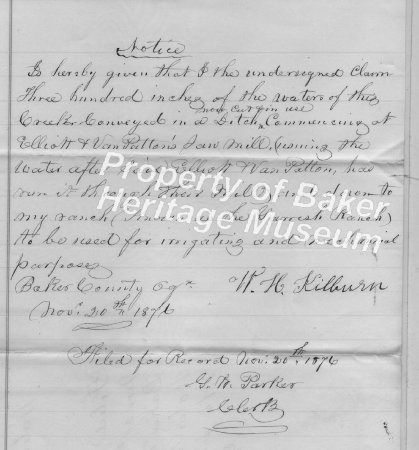 Notice
Is hereby given that I the undersigned Claim
Three hundred inches of the waters of this
now cut & in use
Creek Conveyed in a Ditch Commencing at
Elliott & Van Patton's Saw Mill, (using the
water after Elliott & Van Patton, has
run it through their Mill) and down to
my ranch Ranch)
to be used for irrigating and
purposes
Baker County Ogn W. H. Kilburn
Nov. 20th 1876
Filed for Record Nov. 20th 1876
G. W. Parker
Clerk
Property of Baker
Heritage Museum